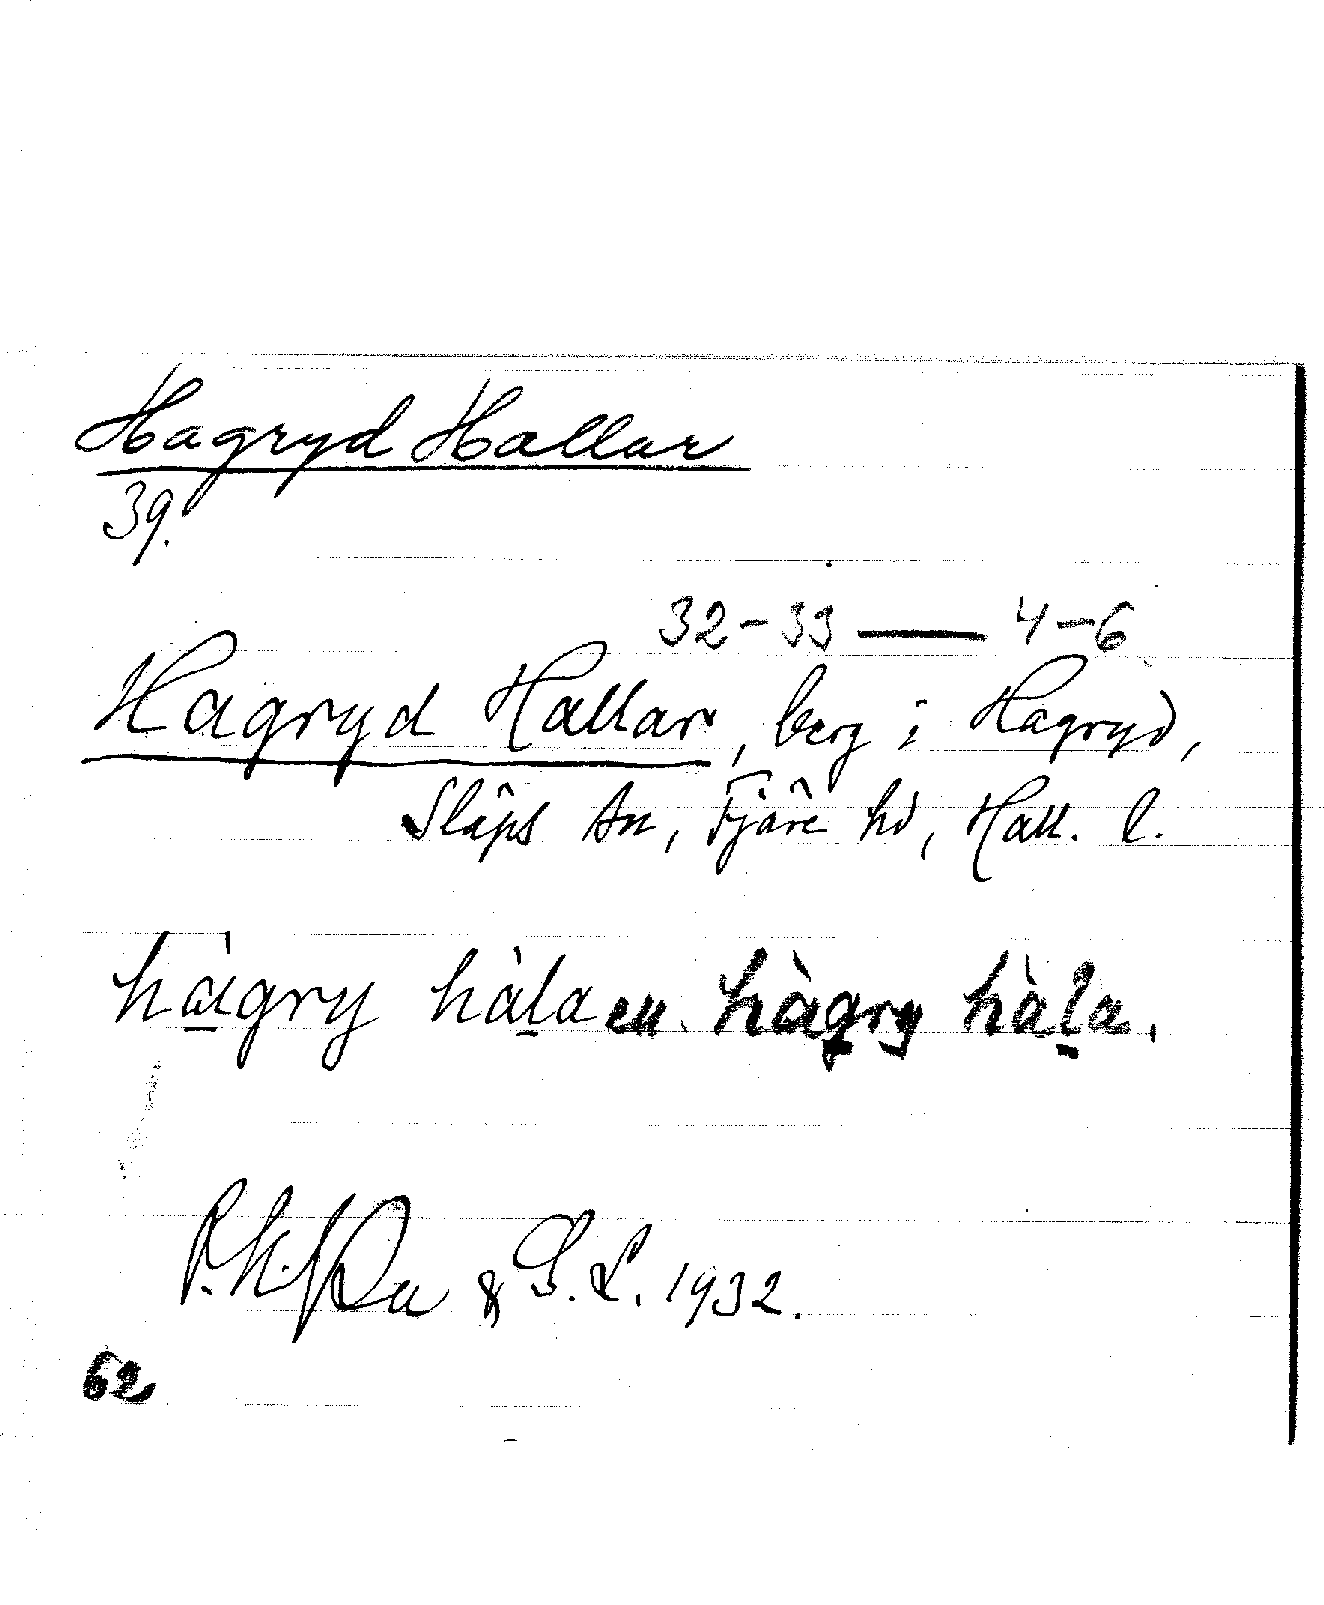 Hagryd Hallar
39.
32-33 — 4-6
Hagryd Hallar, berg i Hagryd,
Släps sn, Fjäre hd, Hall. l.
hàgry hàla en. hàgry hàla.
& G. L. 1932.
62